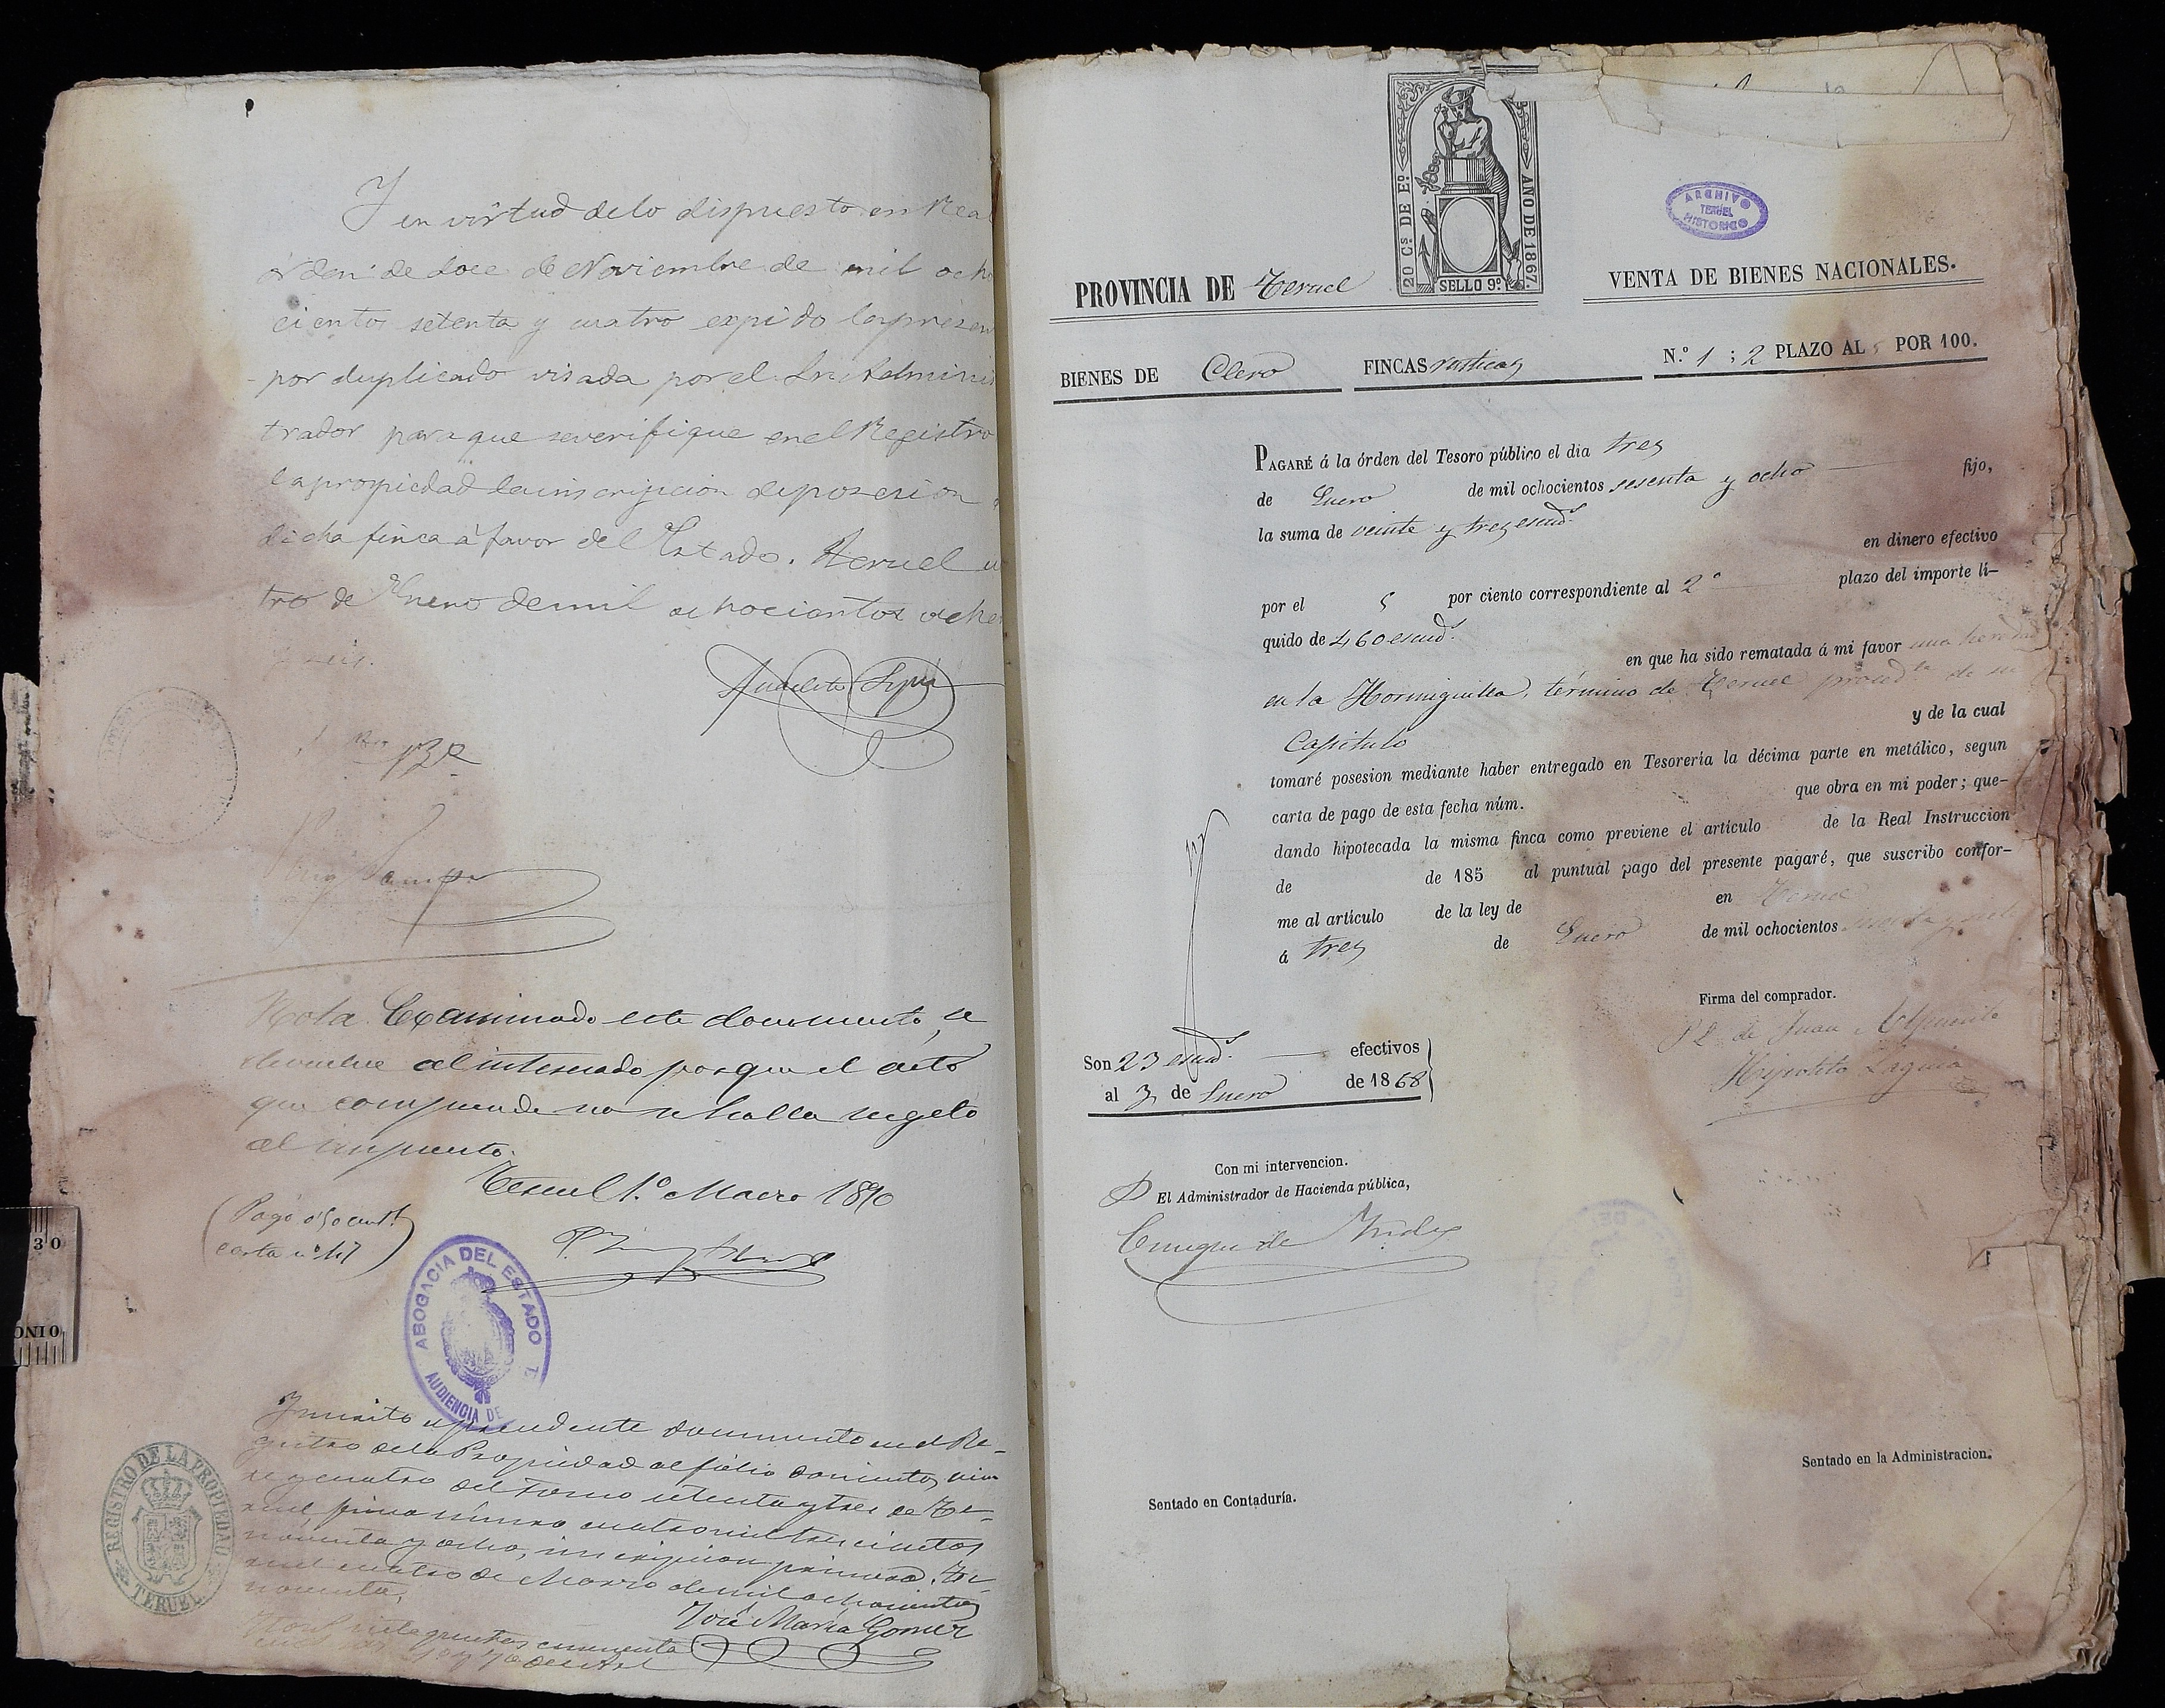 Y en virtud de lo dispuesto en Real
órden de doce de Noviembre de mil ocho
cientos setenta y cuatro expido la presen
por duplicado visada por el Sr. Adminis
trador para que se verifique en el Registro
la propiedad la inscripcion de posesion
dicha finca á favor del Estado. Teruel
tro de Enero de mil ochocientos oche
y seis.
Nota. Examinado este documento, se
devuelve al interesado porque el acto
que comprende no se halla sugeto
al impuesto.
Teruel 1.º Marzo 1890
(Pagó 0'50 cent.
carta nº 47)
ABOGACIA DEL ESTADO
AUDIENCIA DE
Inscrito el precedente documento en el Re-
gistro de la Propiedad al fólio doscientos vein
te y cuatro del Tomo setenta y tres de Te-
ruel, finca número cuatro mil trescientos
noventa y ocho, inscripcion primera. Te-
ruel cuatro de Marzo de mil ochocientos
noventa.
José María Gomez
REGISTRO DE LA PROPIEDAD
TERUEL
30
20 Cs. DE Eº.
AÑO DE 1867.
SELLO 9.º
ARCHIVO
TERUEL
HISTORICO
PROVINCIA DE Teruel
VENTA DE BIENES NACIONALES.
BIENES DE Clero
FINCAS rusticas
N.º 1 : 2 PLAZO AL 5 POR 100.
PAGARÉ á la órden del Tesoro público el dia tres
de Enero de mil ochocientos sesenta y ocho fijo,
la suma de veinte y tres escud.s
en dinero efectivo
por el 5 por ciento correspondiente al 2º plazo del importe lí-
quido de 460 escud.s
en que ha sido rematada á mi favor una heredad
en la Hormiguilla, término de Teruel proced.te de su
Capitulo y de la cual
tomaré posesion mediante haber entregado en Tesorería la décima parte en metálico, segun
carta de pago de esta fecha núm. que obra en mi poder; que-
dando hipotecada la misma finca como previene el artículo de la Real Instruccion
de de 185 al puntual pago del presente pagaré, que suscribo confor-
me al artículo de la ley de en Teruel
á tres de Enero de mil ochocientos sesenta y siete
Firma del comprador.
Hipolito Laguia
Son 23 escud.s efectivos
al 3 de Enero de 1868
Con mi intervencion.
El Administrador de Hacienda pública,
Sentado en la Administracion.
Sentado en Contaduría.